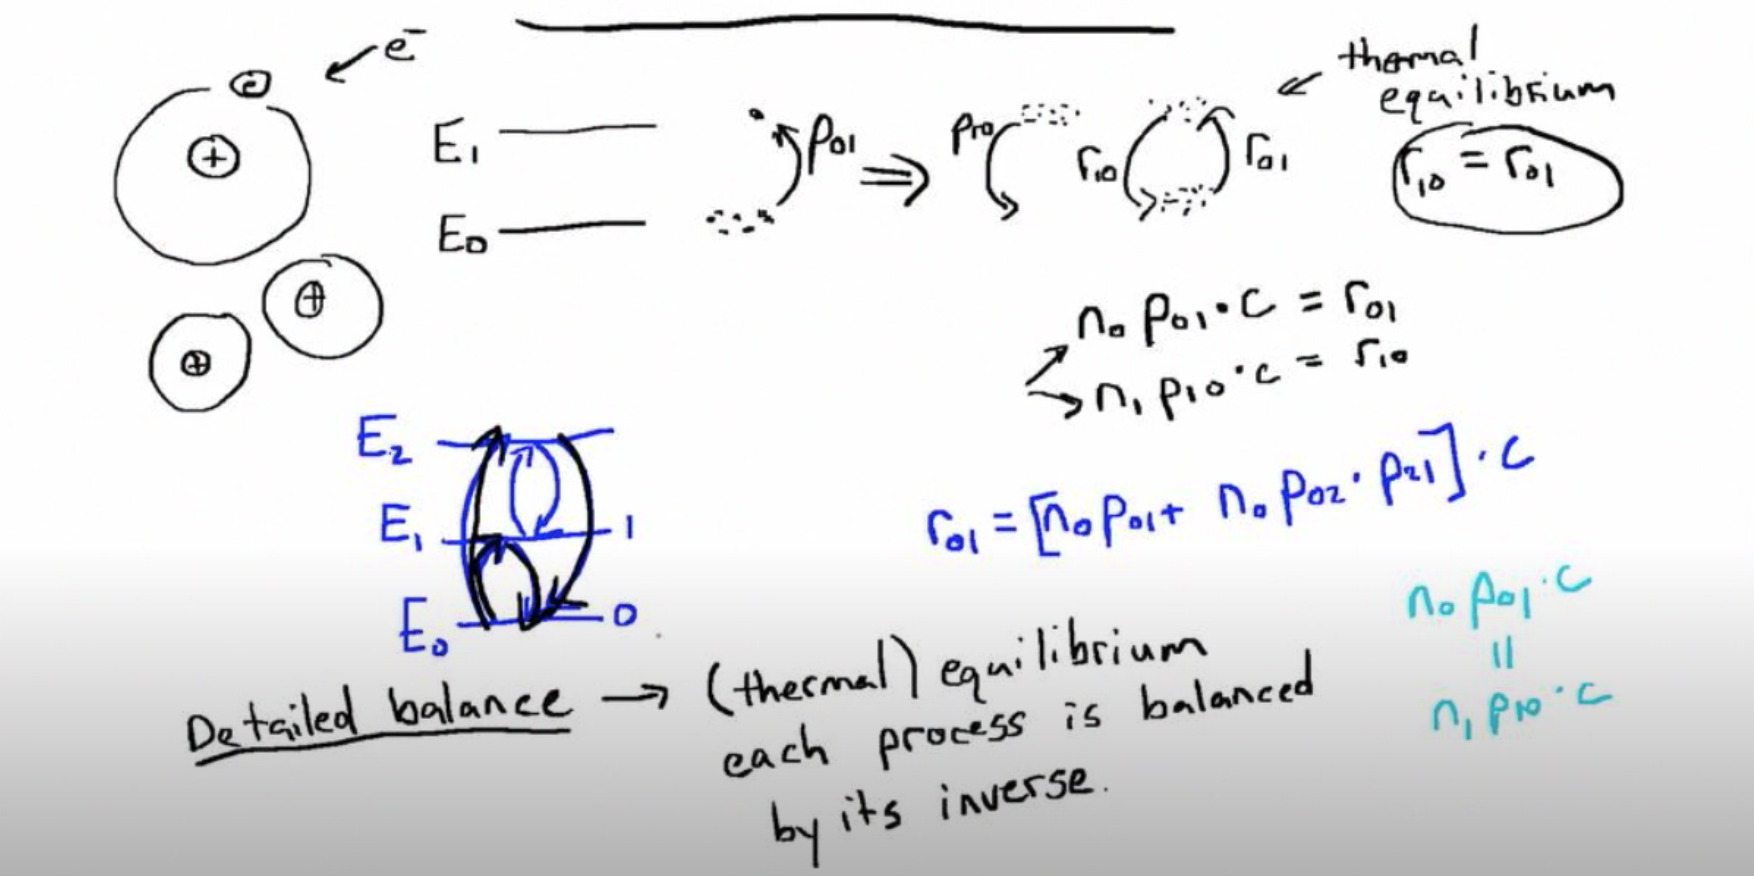 e⁻
thermal
equilibrium
E₁
p₀₁
⇒
p₁₀
r₁₀
r₀₁
r₁₀ = r₀₁
E₀
+
+
+
n₀ p₀₁ · c = r₀₁
n₁ p₁₀ · c = r₁₀
E₂
E₁
1
E₀
0
r₀₁ = [n₀ p₀₁ + n₀ p₀₂ · p₂₁] · c
n₀ p₀₁ · c
=
n₁ p₁₀ · c
Detailed balance → (thermal) equilibrium
each process is balanced
by its inverse.